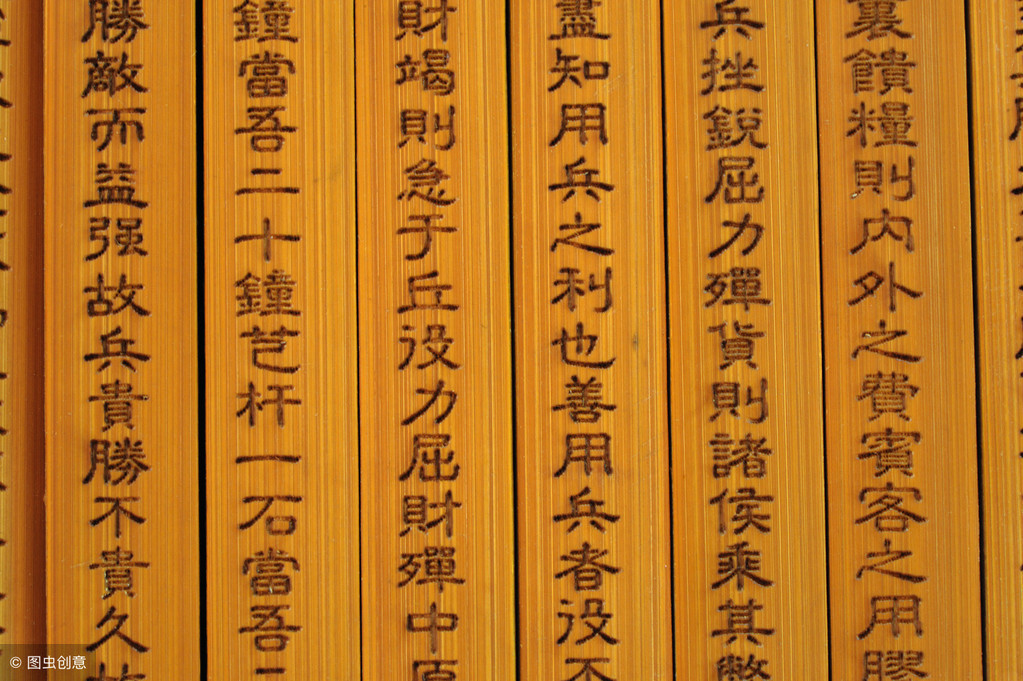 裏饋糧則内外之費賓客之用膠
兵挫銳屈力殫貨則諸侯乘其
盡知用兵之利也善用兵者役不
財竭則急于丘役力屈財殫中原
鐘當吾二十鐘芑杆一石當吾二
勝敵而益强故兵貴勝不貴久故
© 图虫创意